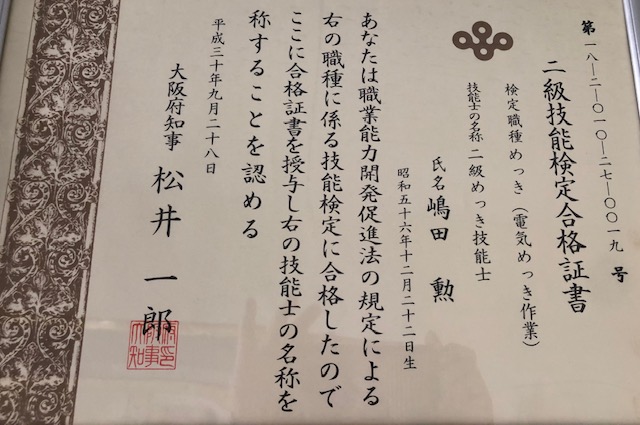 第一八―二―〇一〇―二七―〇〇一九号
二級技能検定合格証書
検定職種めっき（電気めっき作業）
技能士の名称 二級めっき技能士
氏名 嶋田 勲
昭和五十六年十二月二十二日生
あなたは職業能力開発促進法の規定による
右の職種に係る技能検定に合格したので
ここに合格証書を授与し右の技能士の名称を
称することを認める
平成三十年九月二十八日
大阪府知事 松井一郎